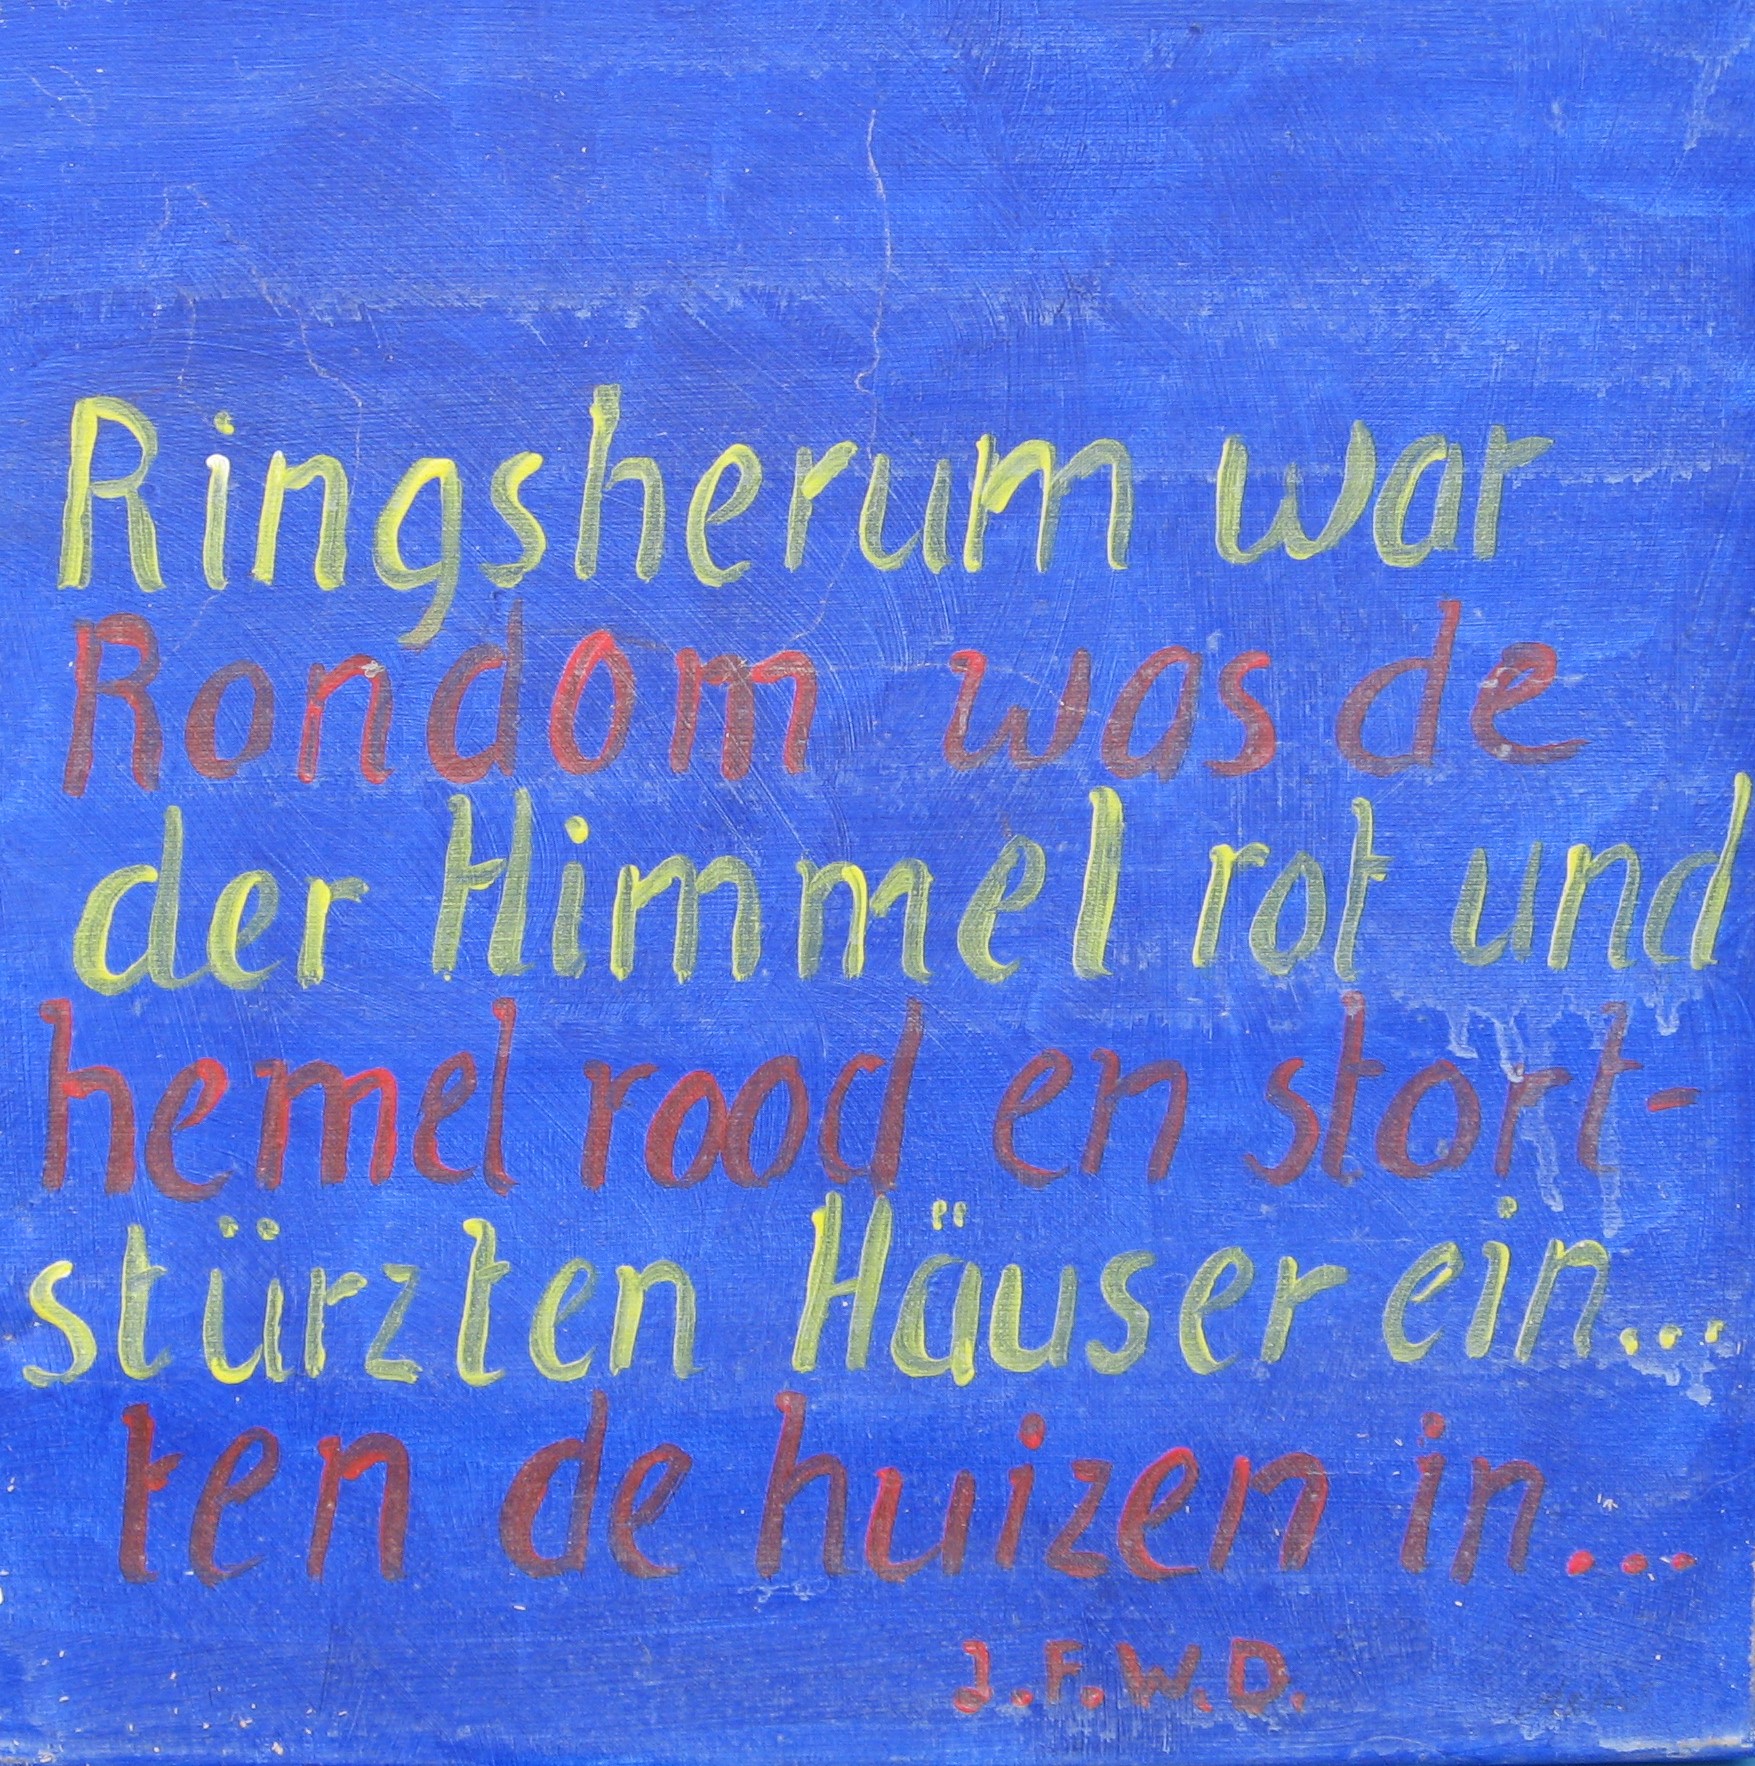 Ringsherum war
Rondom was de
der Himmel rot und
hemel rood en stort-
stürzten Häuser ein...
ten de huizen in...
J.F.W.D.